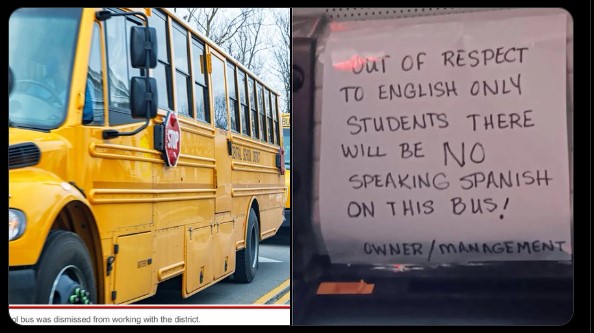 STOP
CENTRAL SCHOOL DISTRICT
ol bus was dismissed from working with the district.
OUT OF RESPECT
TO ENGLISH ONLY
STUDENTS THERE
WILL BE NO
SPEAKING SPANISH
ON THIS BUS!
OWNER/MANAGEMENT